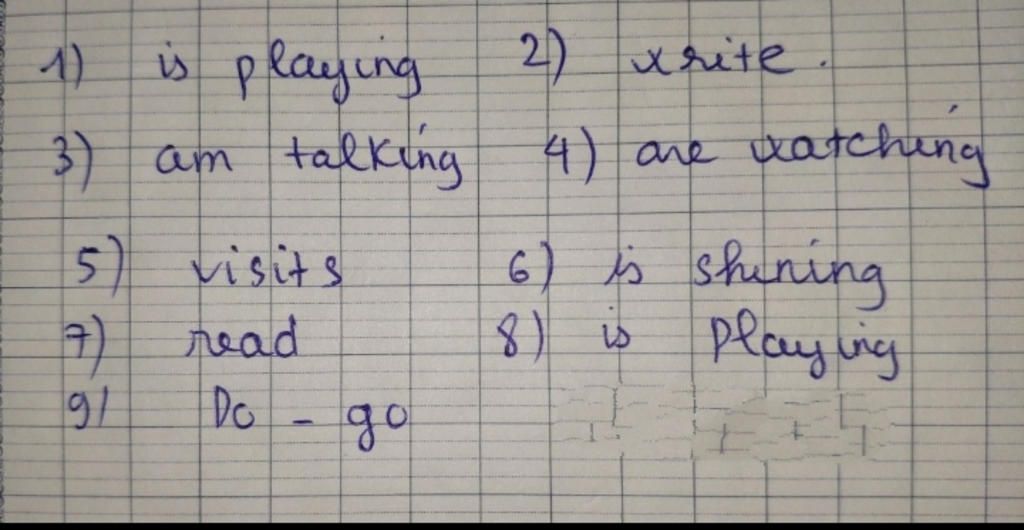 1) is playing 2) write.
3) am talking 4) are watching
5) visits 6) is shining
7) read 8) is playing
9) Do - go